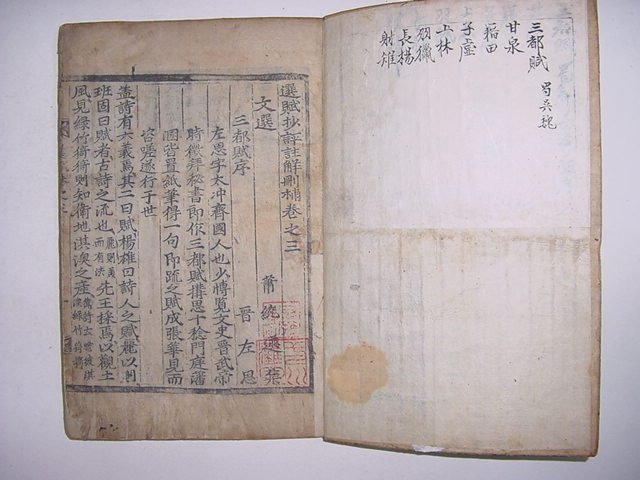 三都賦 蜀吳魏
甘泉
藉田
子虛
上林
羽獵
長楊
射雉
選賦抄評註解刪補卷之三
文選 蕭統 選
三都賦序 晉左思
左思字太冲齊國人也少博覽文史晉武帝
時徵拜秘書郎作三都賦構思十稔門庭藩
溷皆置紙筆得一句即疏之賦成張華見而
咨嗟遂行于世
盖詩有六義焉其二曰賦楊雄曰詩人之賦麗以則
班固曰賦者古詩之流也先王採焉以觀土
風見綠竹猗猗則知衛地淇澳之產